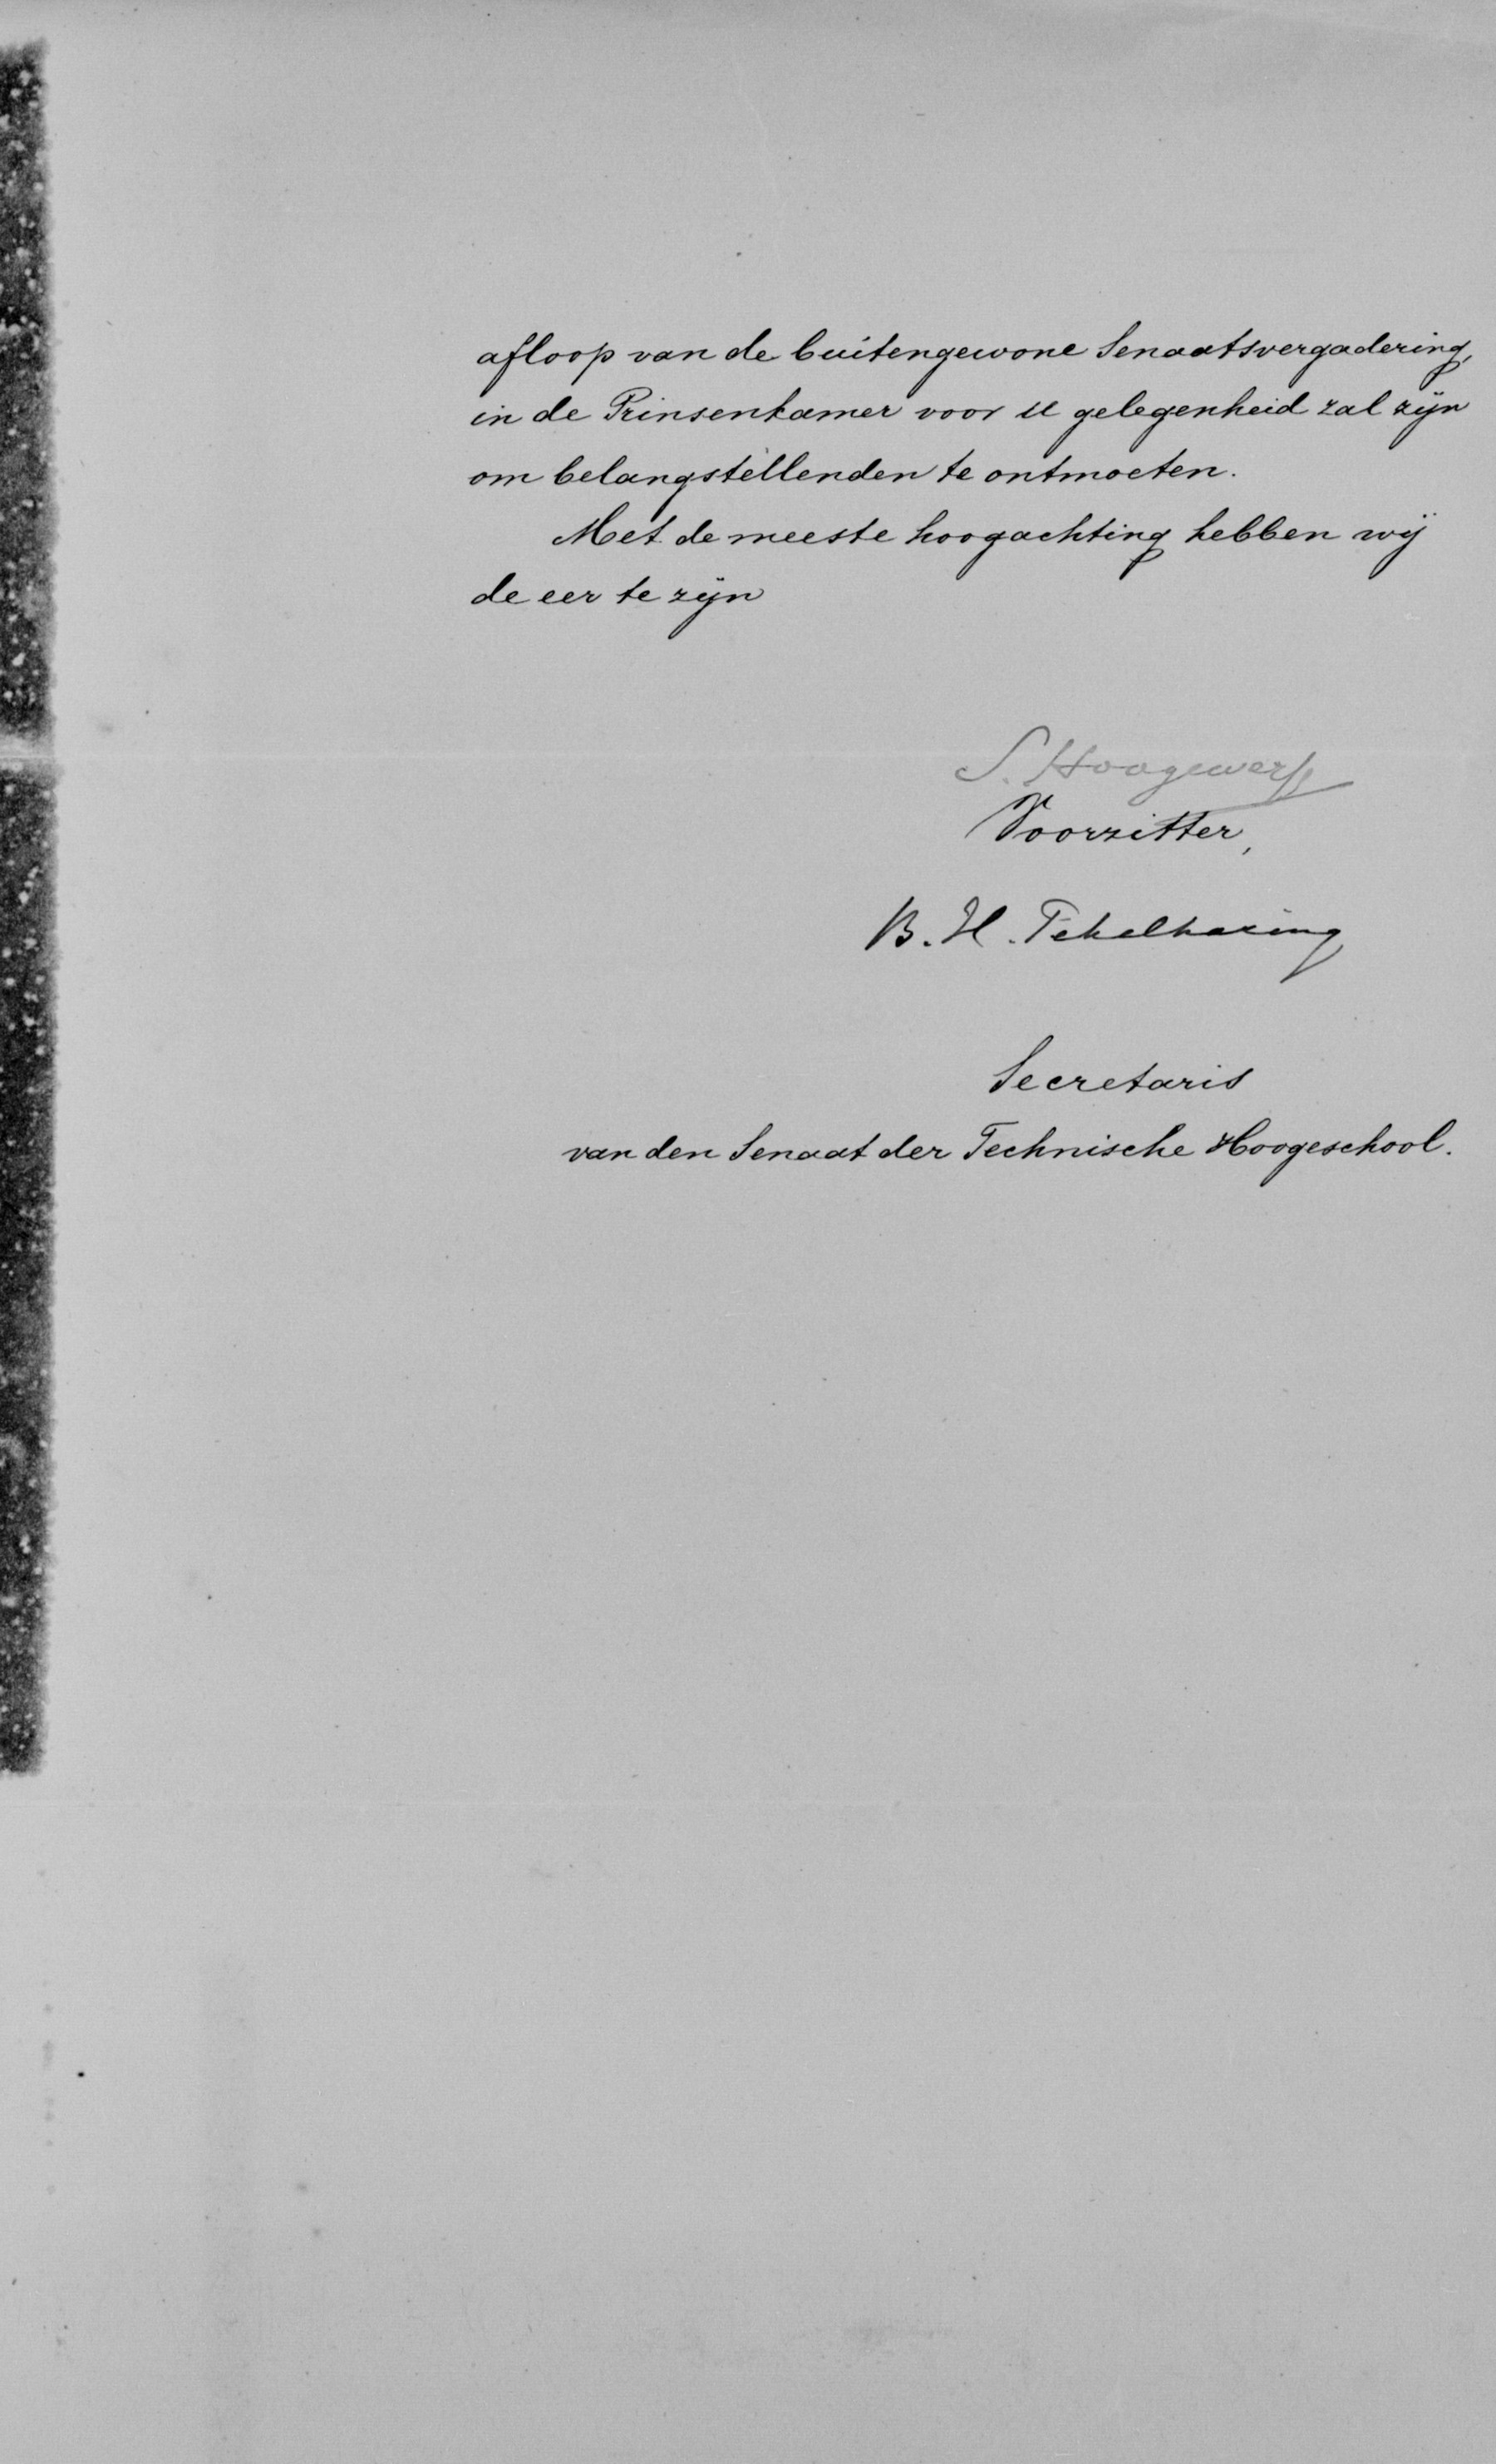 afloop van de buitengewone Senaatsvergadering,
in de Prinsenkamer voor U gelegenheid zal zijn
om belangstellenden te ontmoeten.
Met de meeste hoogachting hebben wij
de eer te zijn
S. Hoogewerff
Voorzitter,
B. H. Pekelharing
Secretaris
van den Senaat der Technische Hoogeschool.